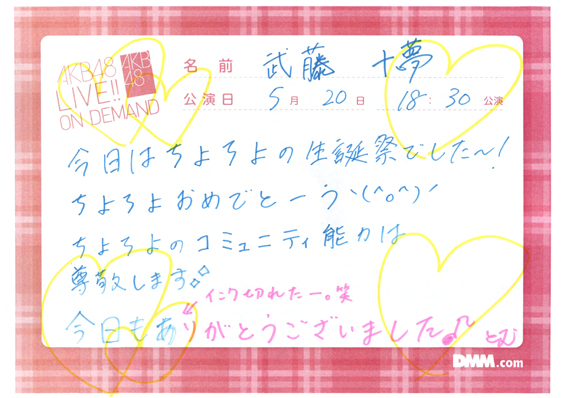 AKB48
LIVE!!
ON DEMAND
AKB
48
名前 武藤 十夢
公演日 5月 20日 18:30公演
今日はちよろよの生誕祭でした〜!
ちよろよおめでとーうヽ(^o^)ノ
ちよろよのコミュニティ能力は
尊敬します
インク切れたー。笑
今日もありがとうございました。 とむ
DMM.com